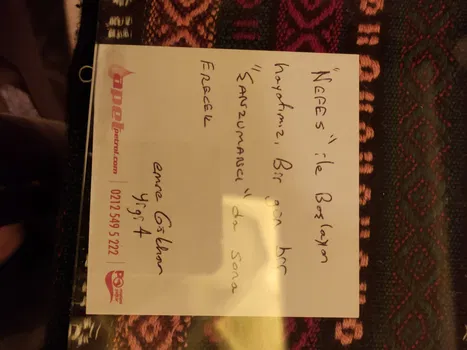 "NEFES" ile Başlayan
hayatımız, Bir gün bir
"ŞANZUMANCI" da Sona
ERECEK
emre Gökhan
yigit
apelpetrol.com | 0212 549 5 222 | PO